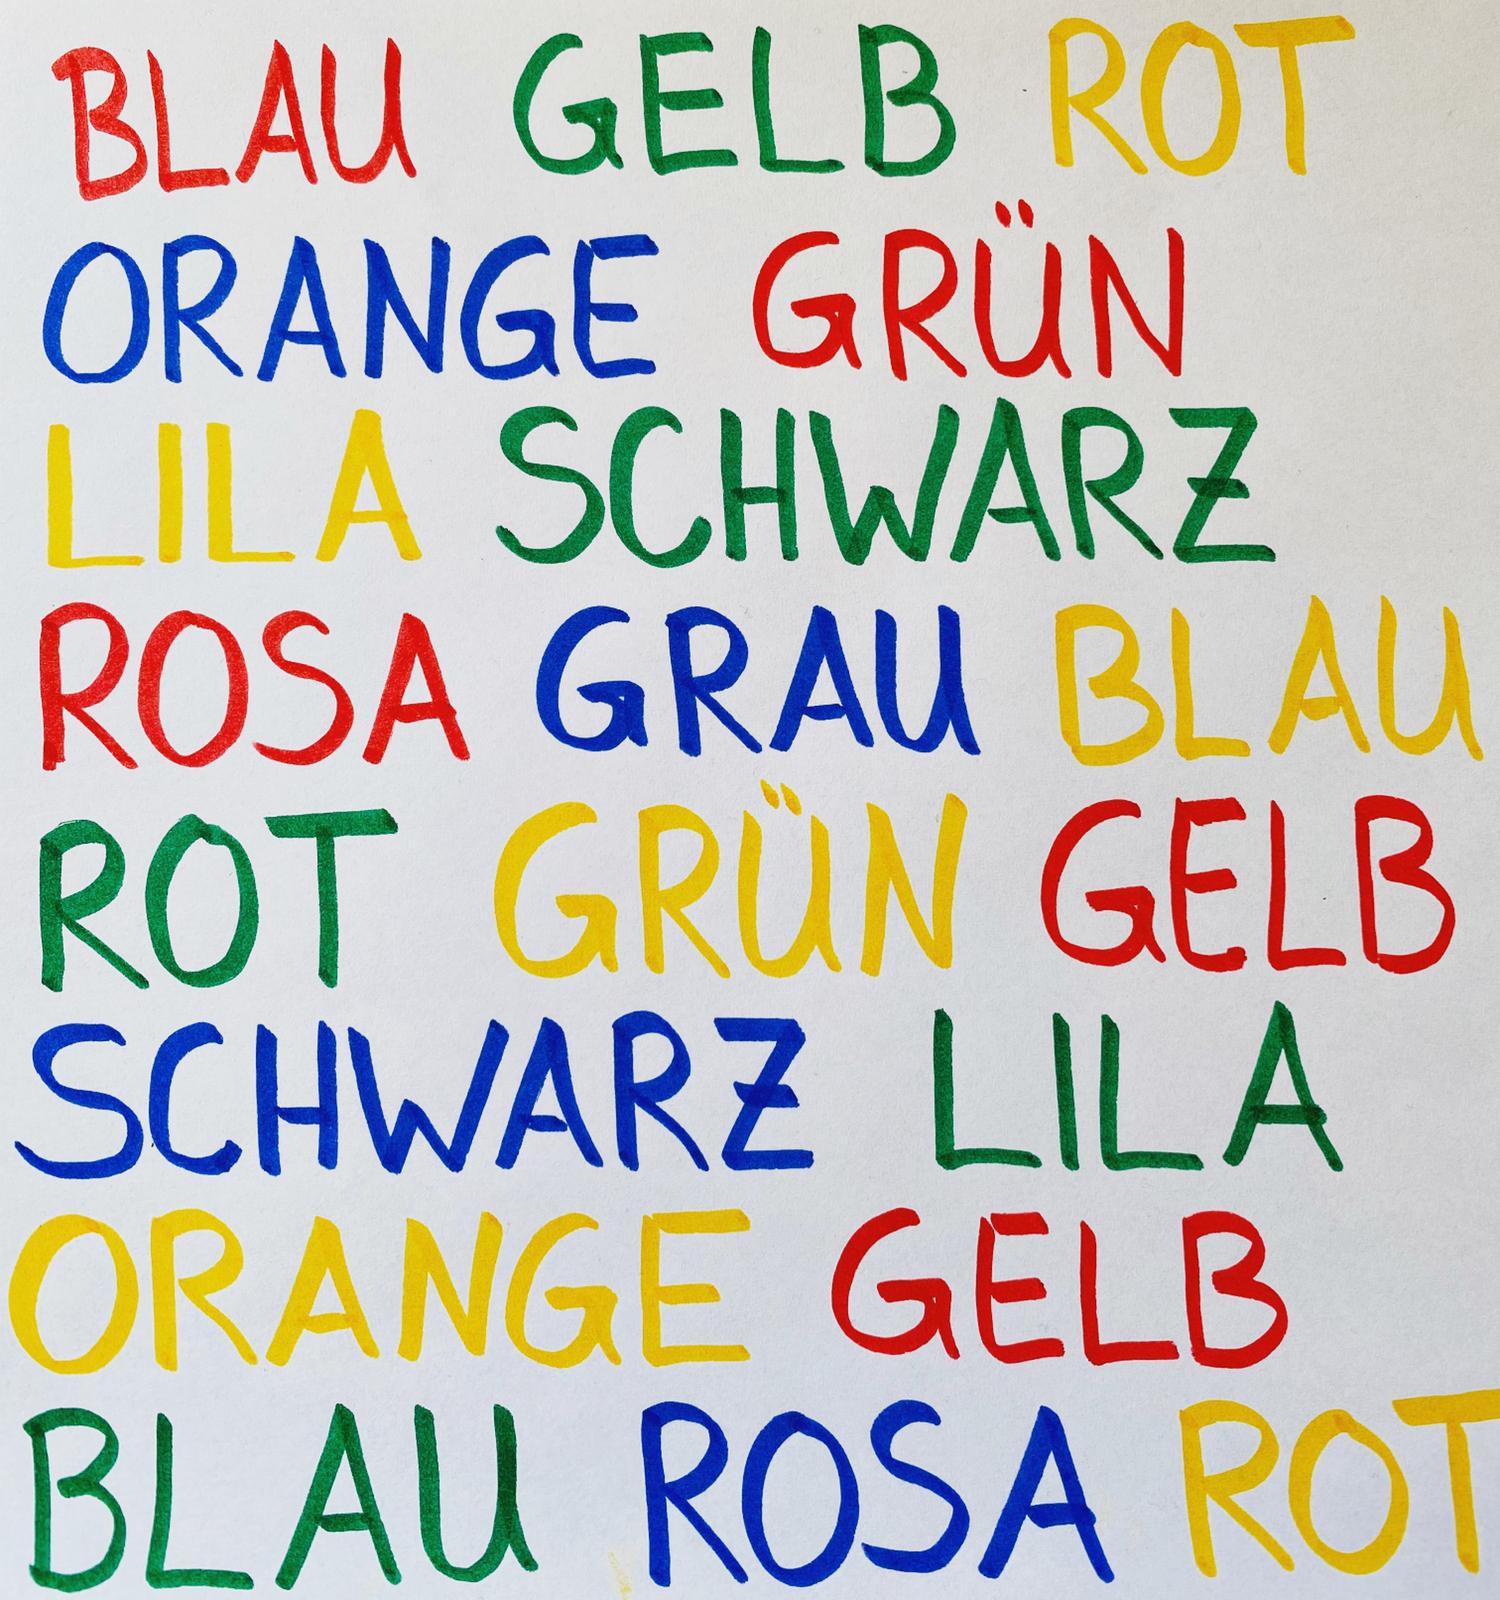 BLAU GELB ROT
ORANGE GRÜN
LILA SCHWARZ
ROSA GRAU BLAU
ROT GRÜN GELB
SCHWARZ LILA
ORANGE GELB
BLAU ROSA ROT